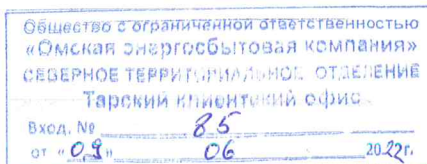 Общество с ограниченной ответственностью
«Омская энергосбытовая компания»
СЕВЕРНОЕ ТЕРРИТОРИАЛЬНОЕ ОТДЕЛЕНИЕ
Тарский клиентский офис
Вход. № 85
от "09" 06 2022г.